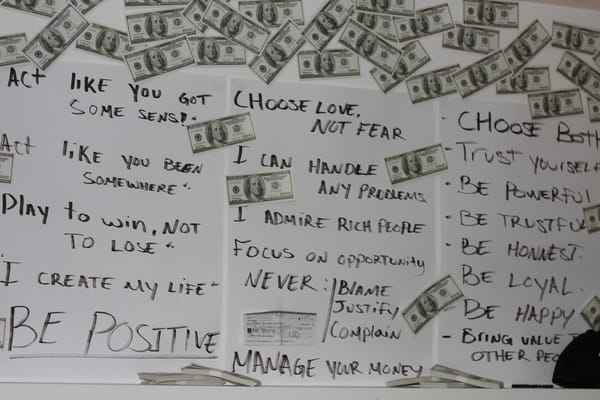 ACT LIKE YOU GOT
SOME SENSE.
ACT LIKE YOU BEEN
SOMEWHERE.
PLAY TO WIN, NOT
TO LOSE.
"I CREATE MY LIFE"
BE POSITIVE
CHOOSE LOVE,
NOT FEAR
I CAN HANDLE
ANY PROBLEMS
I ADMIRE RICH PEOPLE
FOCUS ON OPPORTUNITY
NEVER: BLAME
JUSTIFY
COMPLAIN
MANAGE YOUR MONEY
• CHOOSE BOTH
- TRUST YOURSELF
• BE POWERFUL
• BE TRUSTFUL
• BE HONNEST.
• BE LOYAL.
• BE HAPPY
- BRING VALUE
OTHER